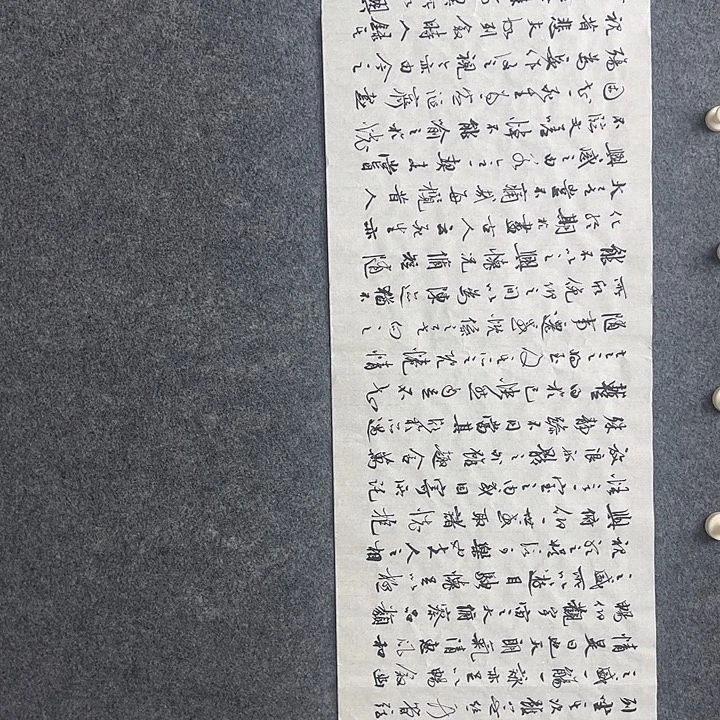 列坐其次雖無絲竹管弦
之盛一觴一詠亦足以暢敘幽
情是日也天朗氣清惠風和
暢仰觀宇宙之大俯察品類
之盛所以遊目騁懷足以極
視聽之娛信可樂也夫人之相
與俯仰一世或取諸懷抱
悟言一室之內或因寄所託
放浪形骸之外雖趣舍萬
殊靜躁不同當其欣於所遇
暫得於己快然自足不知
老之將至及其所之既惓情
隨事遷感慨係之矣向之
所欣俛仰之間以為陳迹猶不
能不以之興懷況脩短隨
化終期於盡古人云死生亦
大矣豈不痛哉每攬昔人
興感之由若合一契未嘗
不臨文嗟悼不能喻之於懷
固知一死生為虛誕齊彭
殤為妄作後之視今亦由今之
視昔悲夫故列敘時人錄其